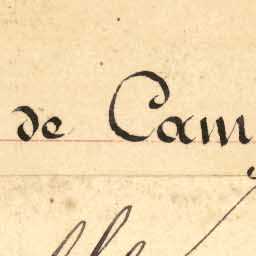 de Cam